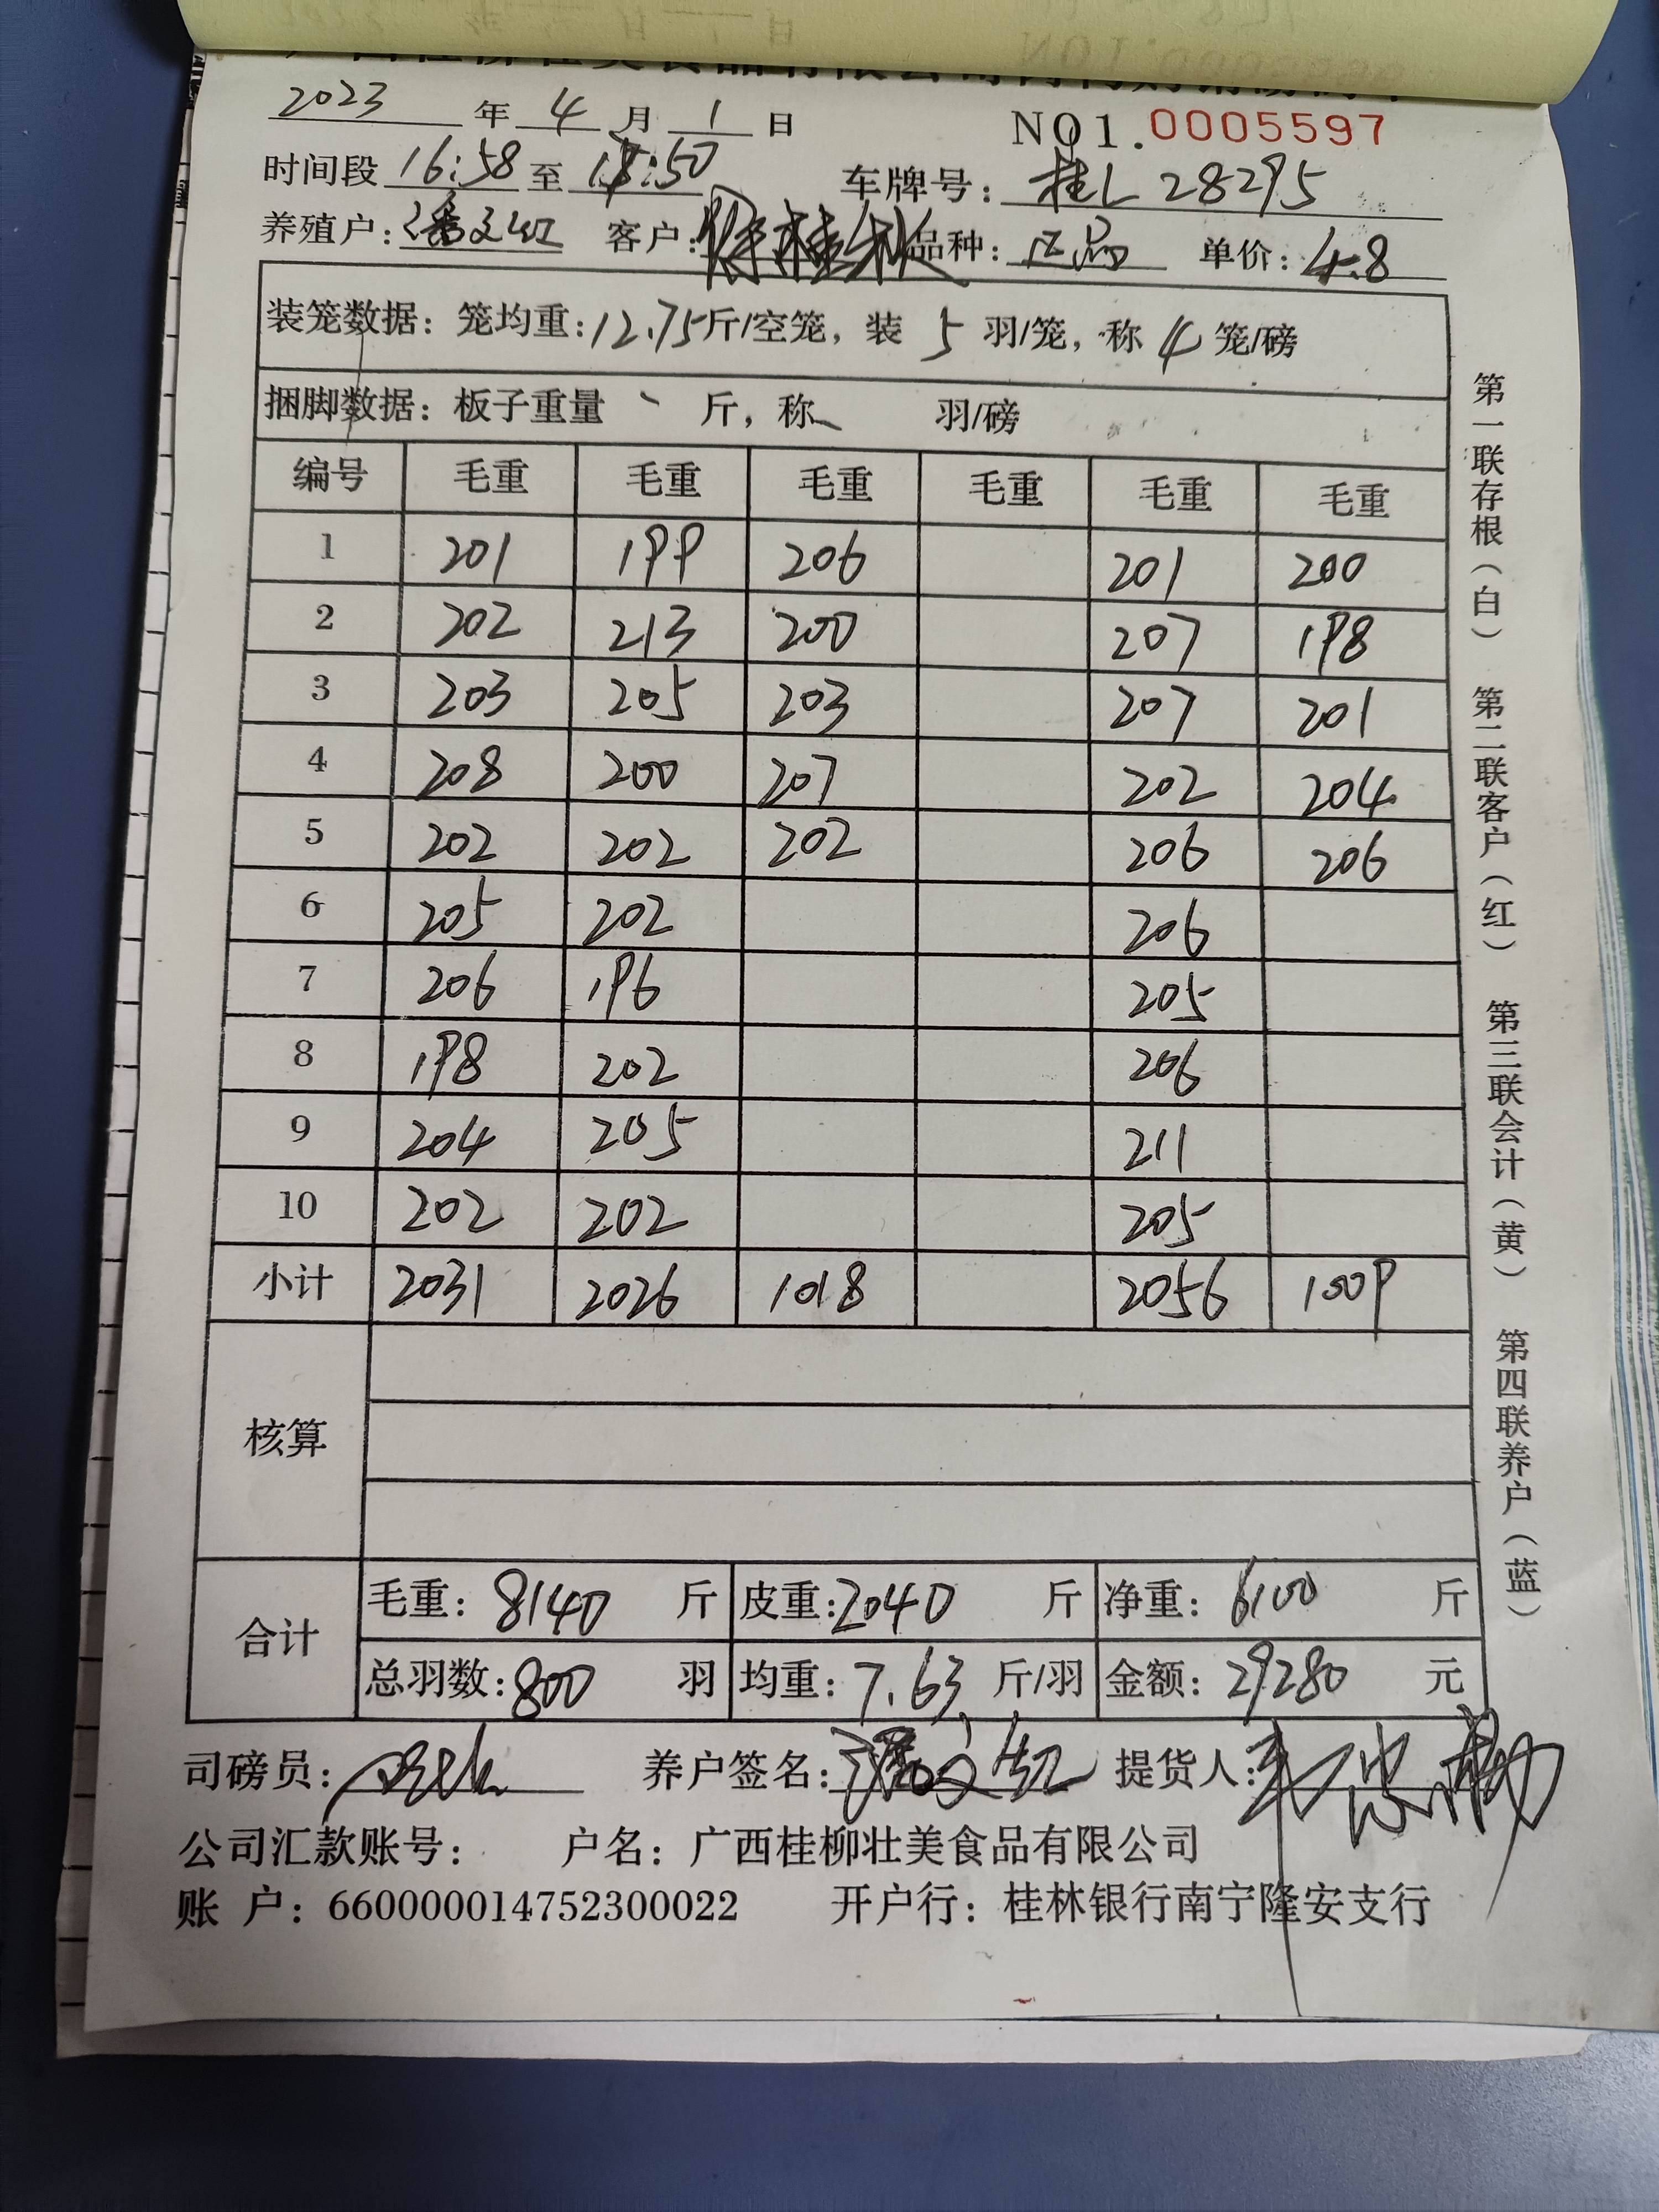 2023 年 4 月 1 日 NO1.0005597
时间段 16:58 至 18:50 车牌号: 桂L 28295
养殖户: 潘文红 客户: 品种: 正品 单价: 4.8
装笼数据: 笼均重: 12.75 斤/空笼, 装 5 羽/笼, 称 4 笼/磅
捆脚数据: 板子重量 斤, 称 羽/磅
编号 毛重 毛重 毛重 毛重 毛重 毛重
1 201 199 206 201 200
2 202 213 200 207 198
3 203 205 203 207 201
4 208 200 207 202 204
5 202 202 202 206 206
6 205 202 206
7 206 196 205
8 198 202 206
9 204 205 211
10 202 202 205
小计 2031 2026 1018 2056 1009
核算
合计 毛重: 8140 斤 皮重: 2040 斤 净重: 6100 斤
总羽数: 800 羽 均重: 7.63 斤/羽 金额: 29280 元
司磅员: 养户签名: 潘文红 提货人:
公司汇款账号: 户名: 广西桂柳壮美食品有限公司
账 户: 660000014752300022 开户行: 桂林银行南宁隆安支行
第一联存根(白) 第二联客户(红) 第三联会计(黄) 第四联养户(蓝)